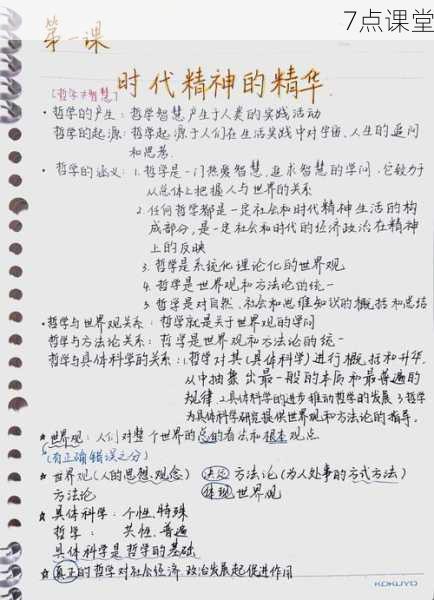 7点课堂
第一课
时代精神的精华.
[哲学≠智慧]
·哲学的产生：哲学智慧产生于人类的实践活动
哲学的起源：哲学起源于人们在生活实践中对宇宙、人生的追问
和思考.
·哲学的涵义：1.哲学是一门热爱智慧、追求智慧的学问，它致力于
从总体上把握人与世界的关系
2.任何哲学都是一定社会和时代精神生活的构
成部分，是一定社会和时代的经济政治在精神
上的反映
3.哲学是系统化理论化的世界观
4.哲学是世界观和方法论的统一
5.哲学是对自然、社会和思维知识的概括和总结
·哲学与世界观关系：哲学就是关于世界观的学问
哲学与方法论关系：哲学是世界观和方法论的统一
哲学与具体科学的关系：1.哲学对其(具体科学)进行概括和升华，
从中抽象出最一般的本质和最普遍的
规律 2.具体科学的进步推动哲学的发展 3.哲学
为具体科学研究提供世界观和方法论的指导.
★世界观：人们对整个世界的总的看法和根本观点
(有正确错误之分)
★世界观(人的思想、观念) 决定 方法论(为人处事的方式方法)
方法论 体现 世界观
★具体科学：个性、特殊
哲学： 共性、普遍
具体科学是哲学的基础
★真正的哲学对社会经济政治发展起促进作用
KOKUYO